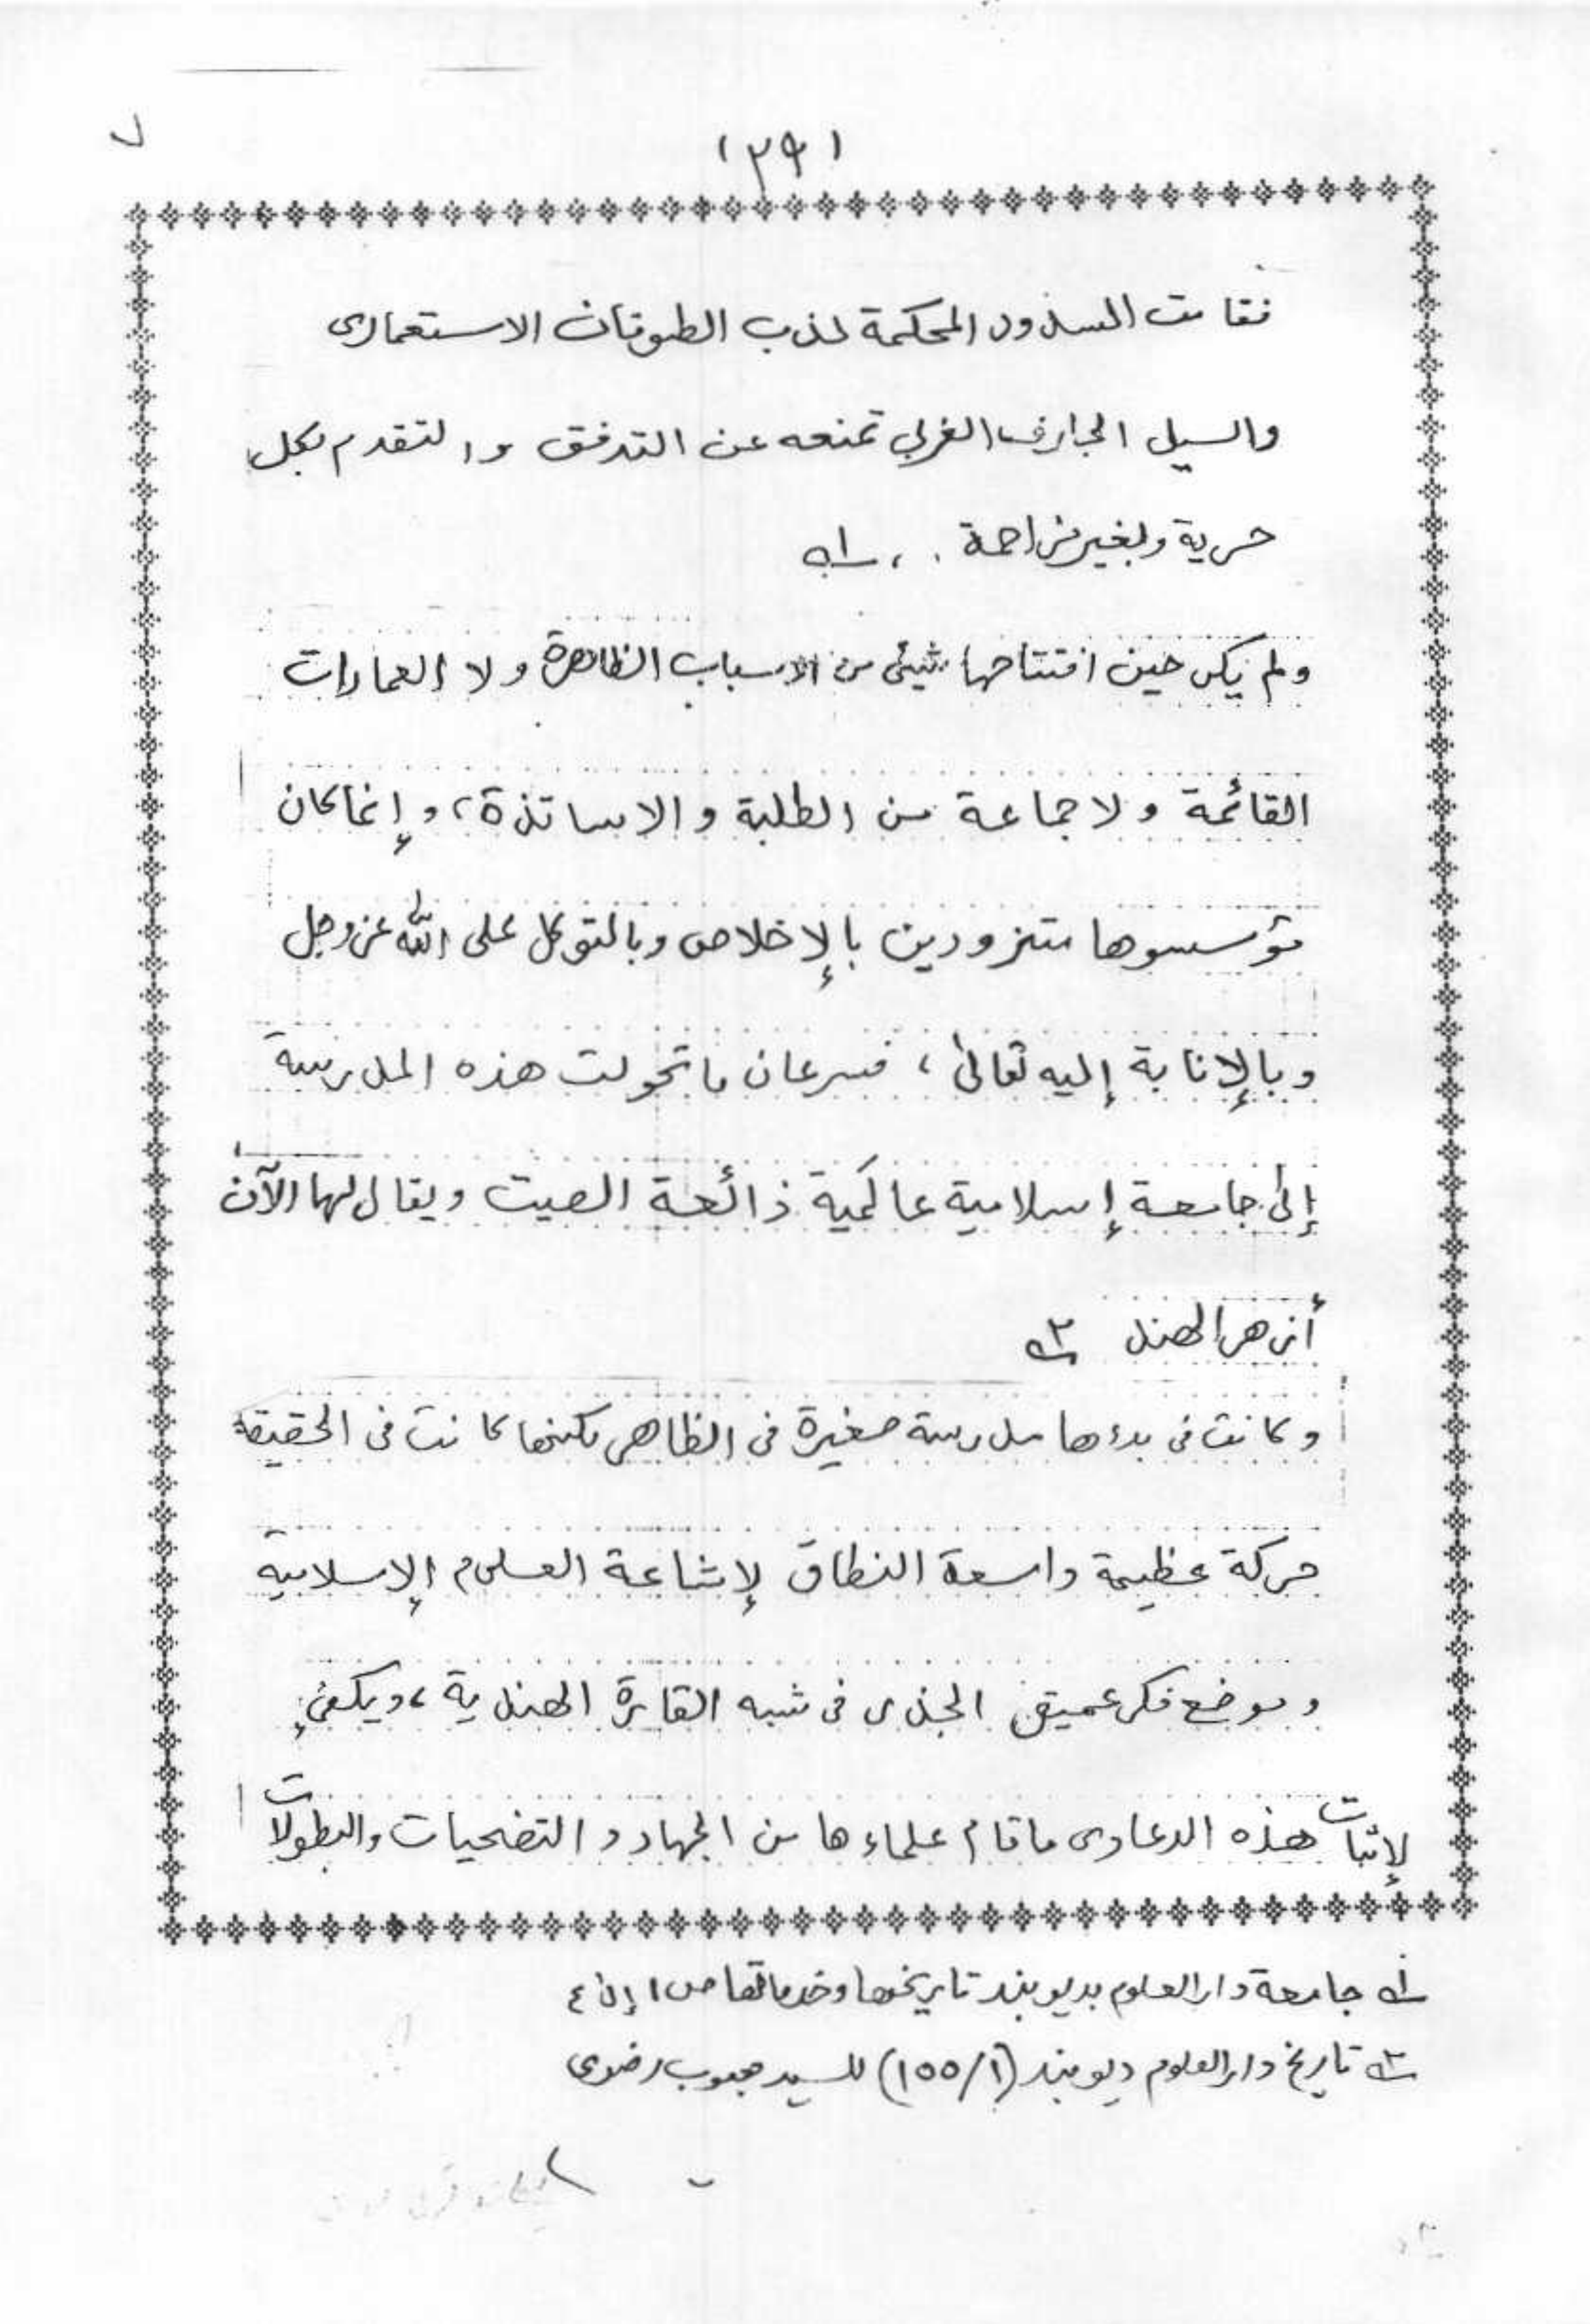 (٣٩)
فقامت السدود المحكمة لذب الطوفان الاستعمارى
والسيل الجارف الغربي تمنعه عن التدفق والتقدم بكل
حرية وبغير مزاحمة . ، ـ١ـه
ولم يكن حين افتتاحها شيئى من الاسباب الظاهرة ولا العمارات
القائمة ولا جماعة من الطلبة والاساتذة، وإنما كان
مؤسسوها متزودين بالإخلاص وبالتوكل على الله عز وجل
وبالإنابة إليه تعالىٰ ، فسرعان ما تحولت هذه المدرسة
إلىٰ جامعة إسلامية عالمية ذائعة الصيت ويقال لها الآن
أزهر الهند ـ٢ـه
وكانت فى بدءها مدرسة صغيرة فى الظاهر لكنها كانت فى الحقيقة
حركة عظيمة واسعة النطاق لإشاعة العلوم الإسلامية
وموضع فكر عميق الجذرى فى شبه القارة الهندية، ويكفي
لإثبات هذه الدعاوى ما قام علماءها من الجهاد والتضحيات والبطولات
ـ١ـه جامعة دار العلوم بديوبند تاريخها وخدماتها ص ١ إلىٰ ٤
ـ٢ـه تاريخ دار العلوم ديوبند (١/ ١٥٥) للسيد محبوب رضوى